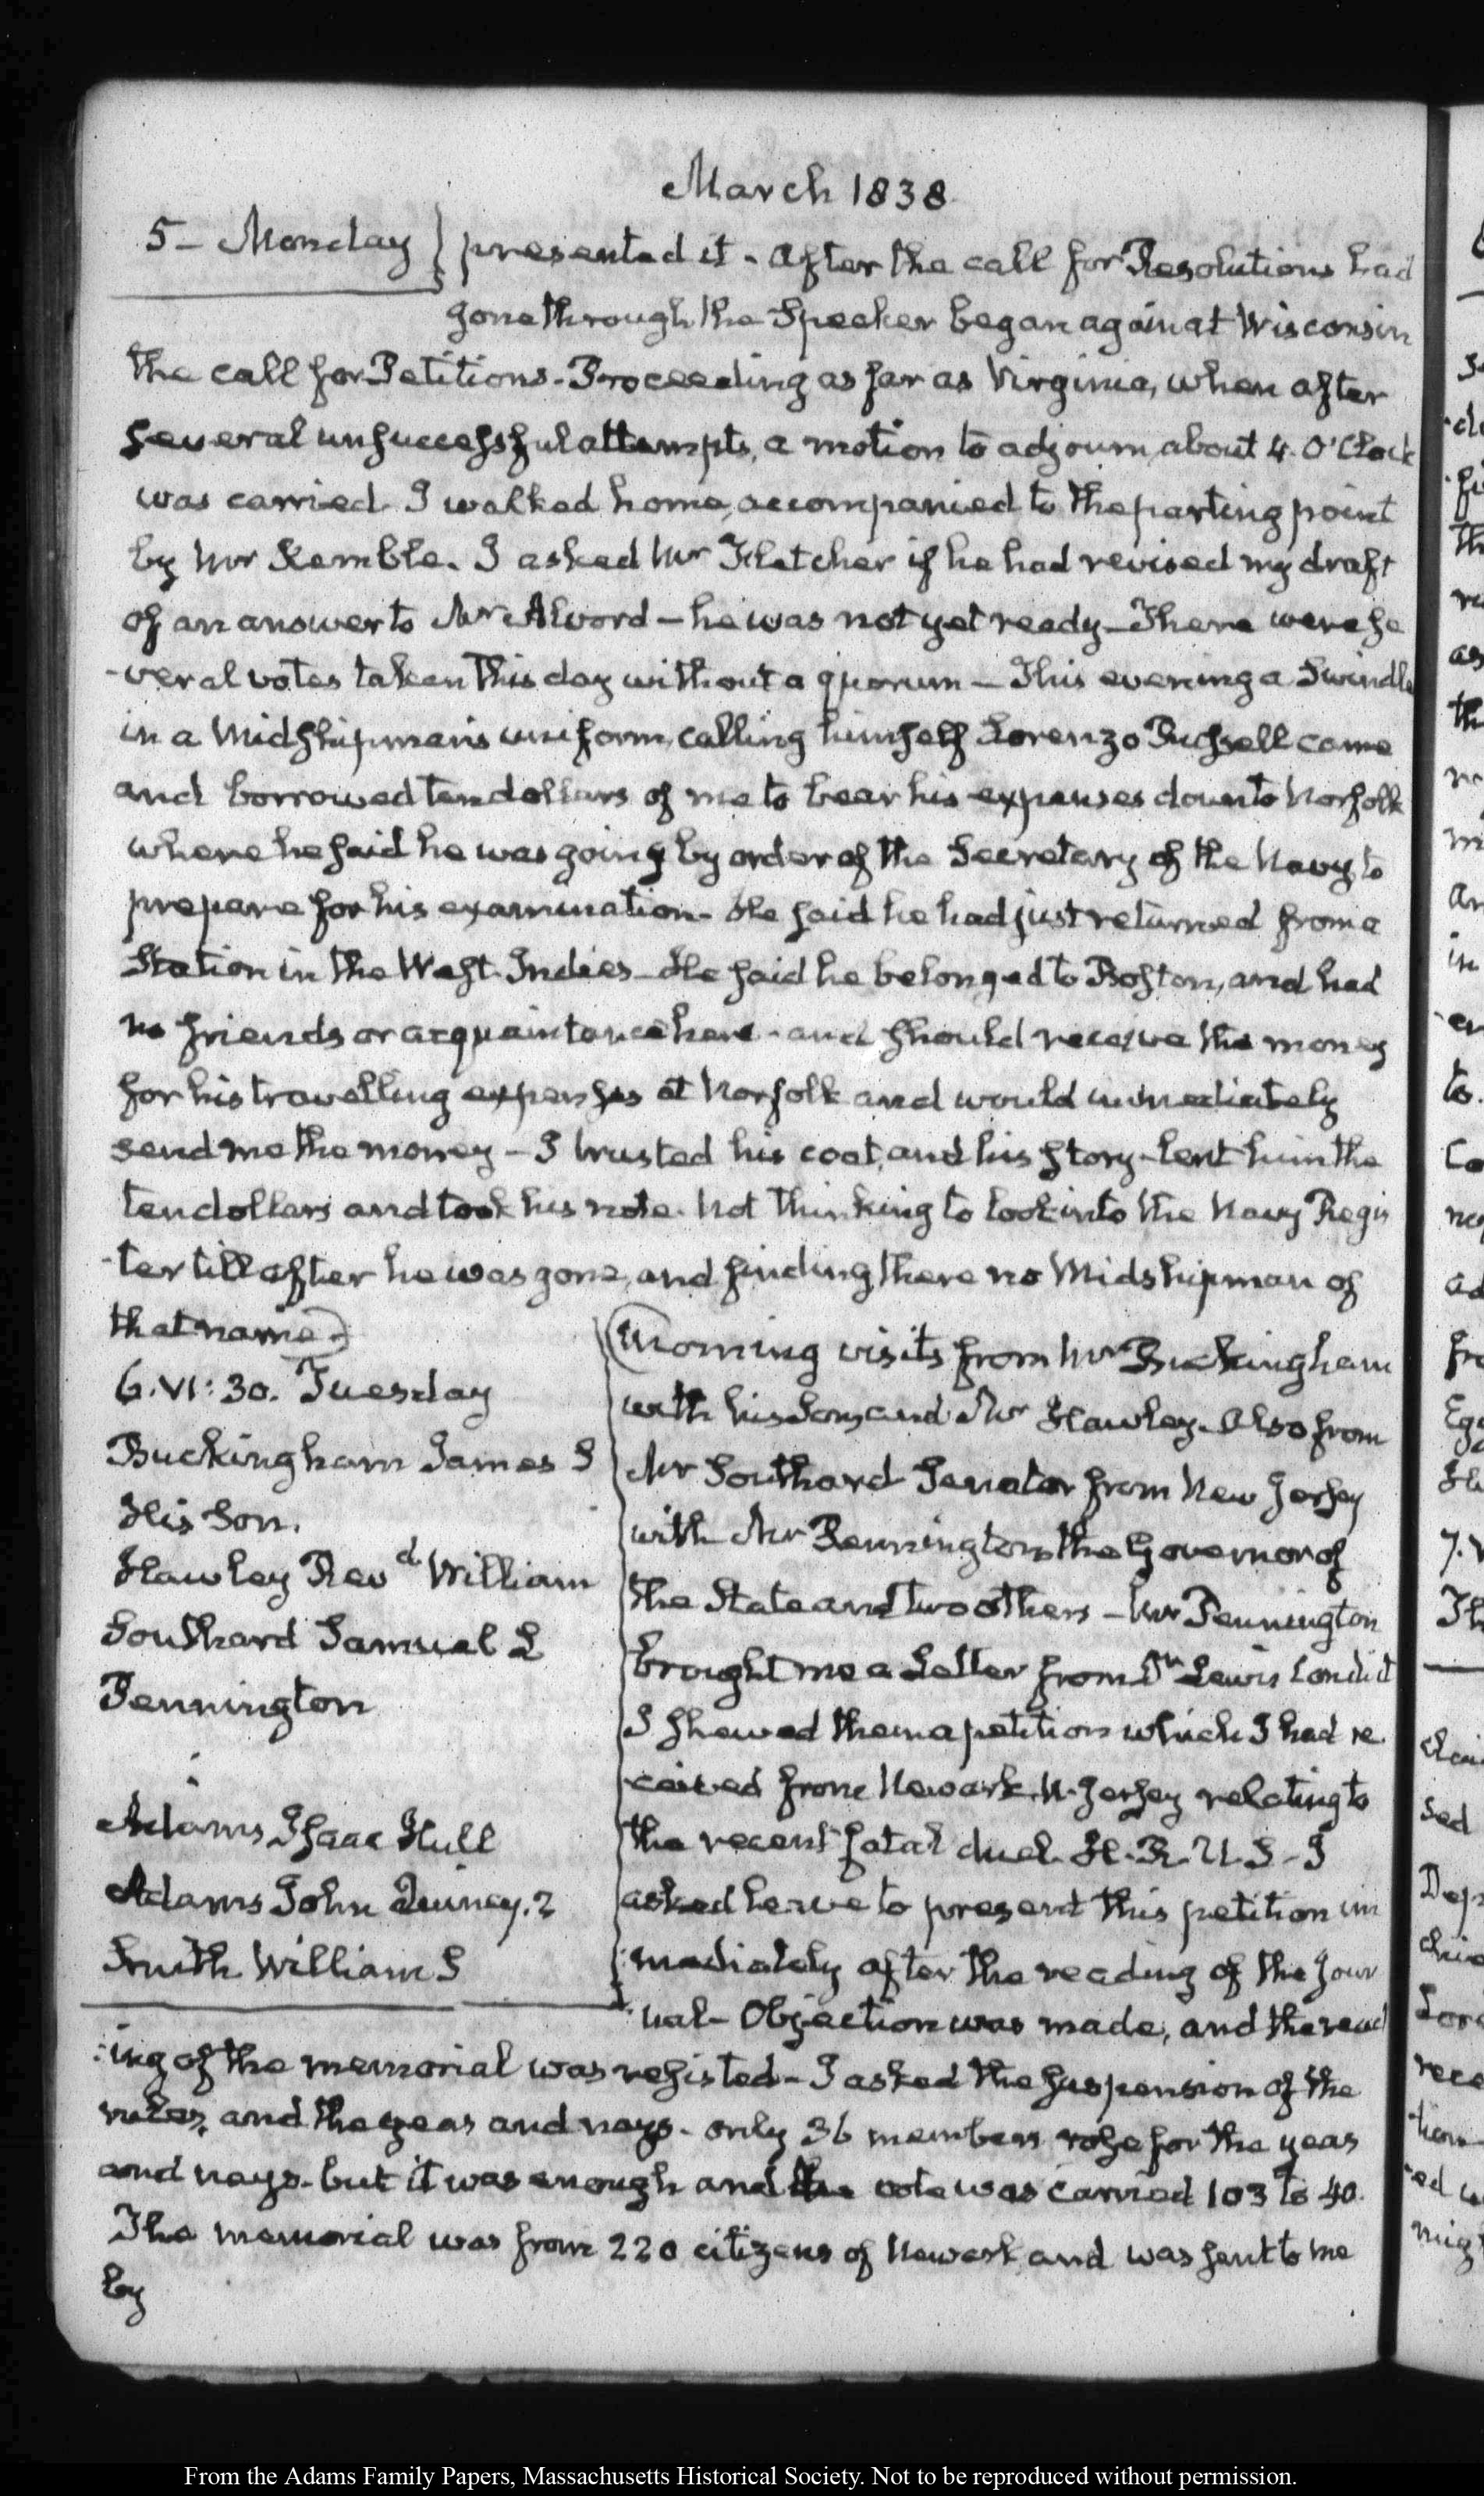 March 1838.
5 - Monday
presented it - After the call for Resolutions had
gone through the Speaker began again at Wisconsin
the call for Petitions - Proceeding as far as Virginia, when after
several unsuccessful attempts, a motion to adjourn, about 4. O'Clock
was carried. I walked home, accompanied to the parting point
by Mr Kemble. I asked Mr Fletcher if he had revised my draft
of an answer to Mr Alvord - he was not yet ready - There were se
-veral votes taken this day without a quorum - This evening a Swindler
in a Midshipman's uniform, calling himself Lorenzo Russell came
and borrowed ten dollars of me to bear his expenses down to Norfolk
where he said he was going by order of the Secretary of the Navy to
prepare for his examination - He said he had just returned from a
Station in the West-Indies - He said he belonged to Boston, and had
no friends or acquaintance here - and should receive the money
for his travelling expenses at Norfolk and would immediately
send me the money - I trusted his coat, and his story - lent him the
ten dollars and took his note. Not thinking to look into the Navy Regis
-ter till after he was gone, and finding there no Midshipman of
that name.
6. VI: 30. Tuesday
Buckingham James S
His Son.
Hawley Revd William
Southard Samuel L
Pennington
Adams Isaac Hull
Adams John Quincy. 2
Smith William S
Morning visits from Mr Buckingham
with his Son, and Mr Hawley. Also from
Mr Southard Senator from New Jersey
with Mr Pennington the Governor of
the State and two others - Mr Pennington
brought me a Letter from Dr Lewis Condict
I shewed them a petition which I had re
ceived from Newark N. Jersey relating to
the recent fatal duel. H. R. U. S - I
asked leave to present this petition im
:mediately after the reading of the Jour
nal - Objection was made, and the read
:ing of the memorial was resisted - I asked the suspension of the
rules, and the yeas and nays - only 36 members rose for the yeas
and nays - but it was enough and the vote was carried 103 to 40.
The memorial was from 220 citizens of Newark, and was sent to me
by
From the Adams Family Papers, Massachusetts Historical Society. Not to be reproduced without permission.